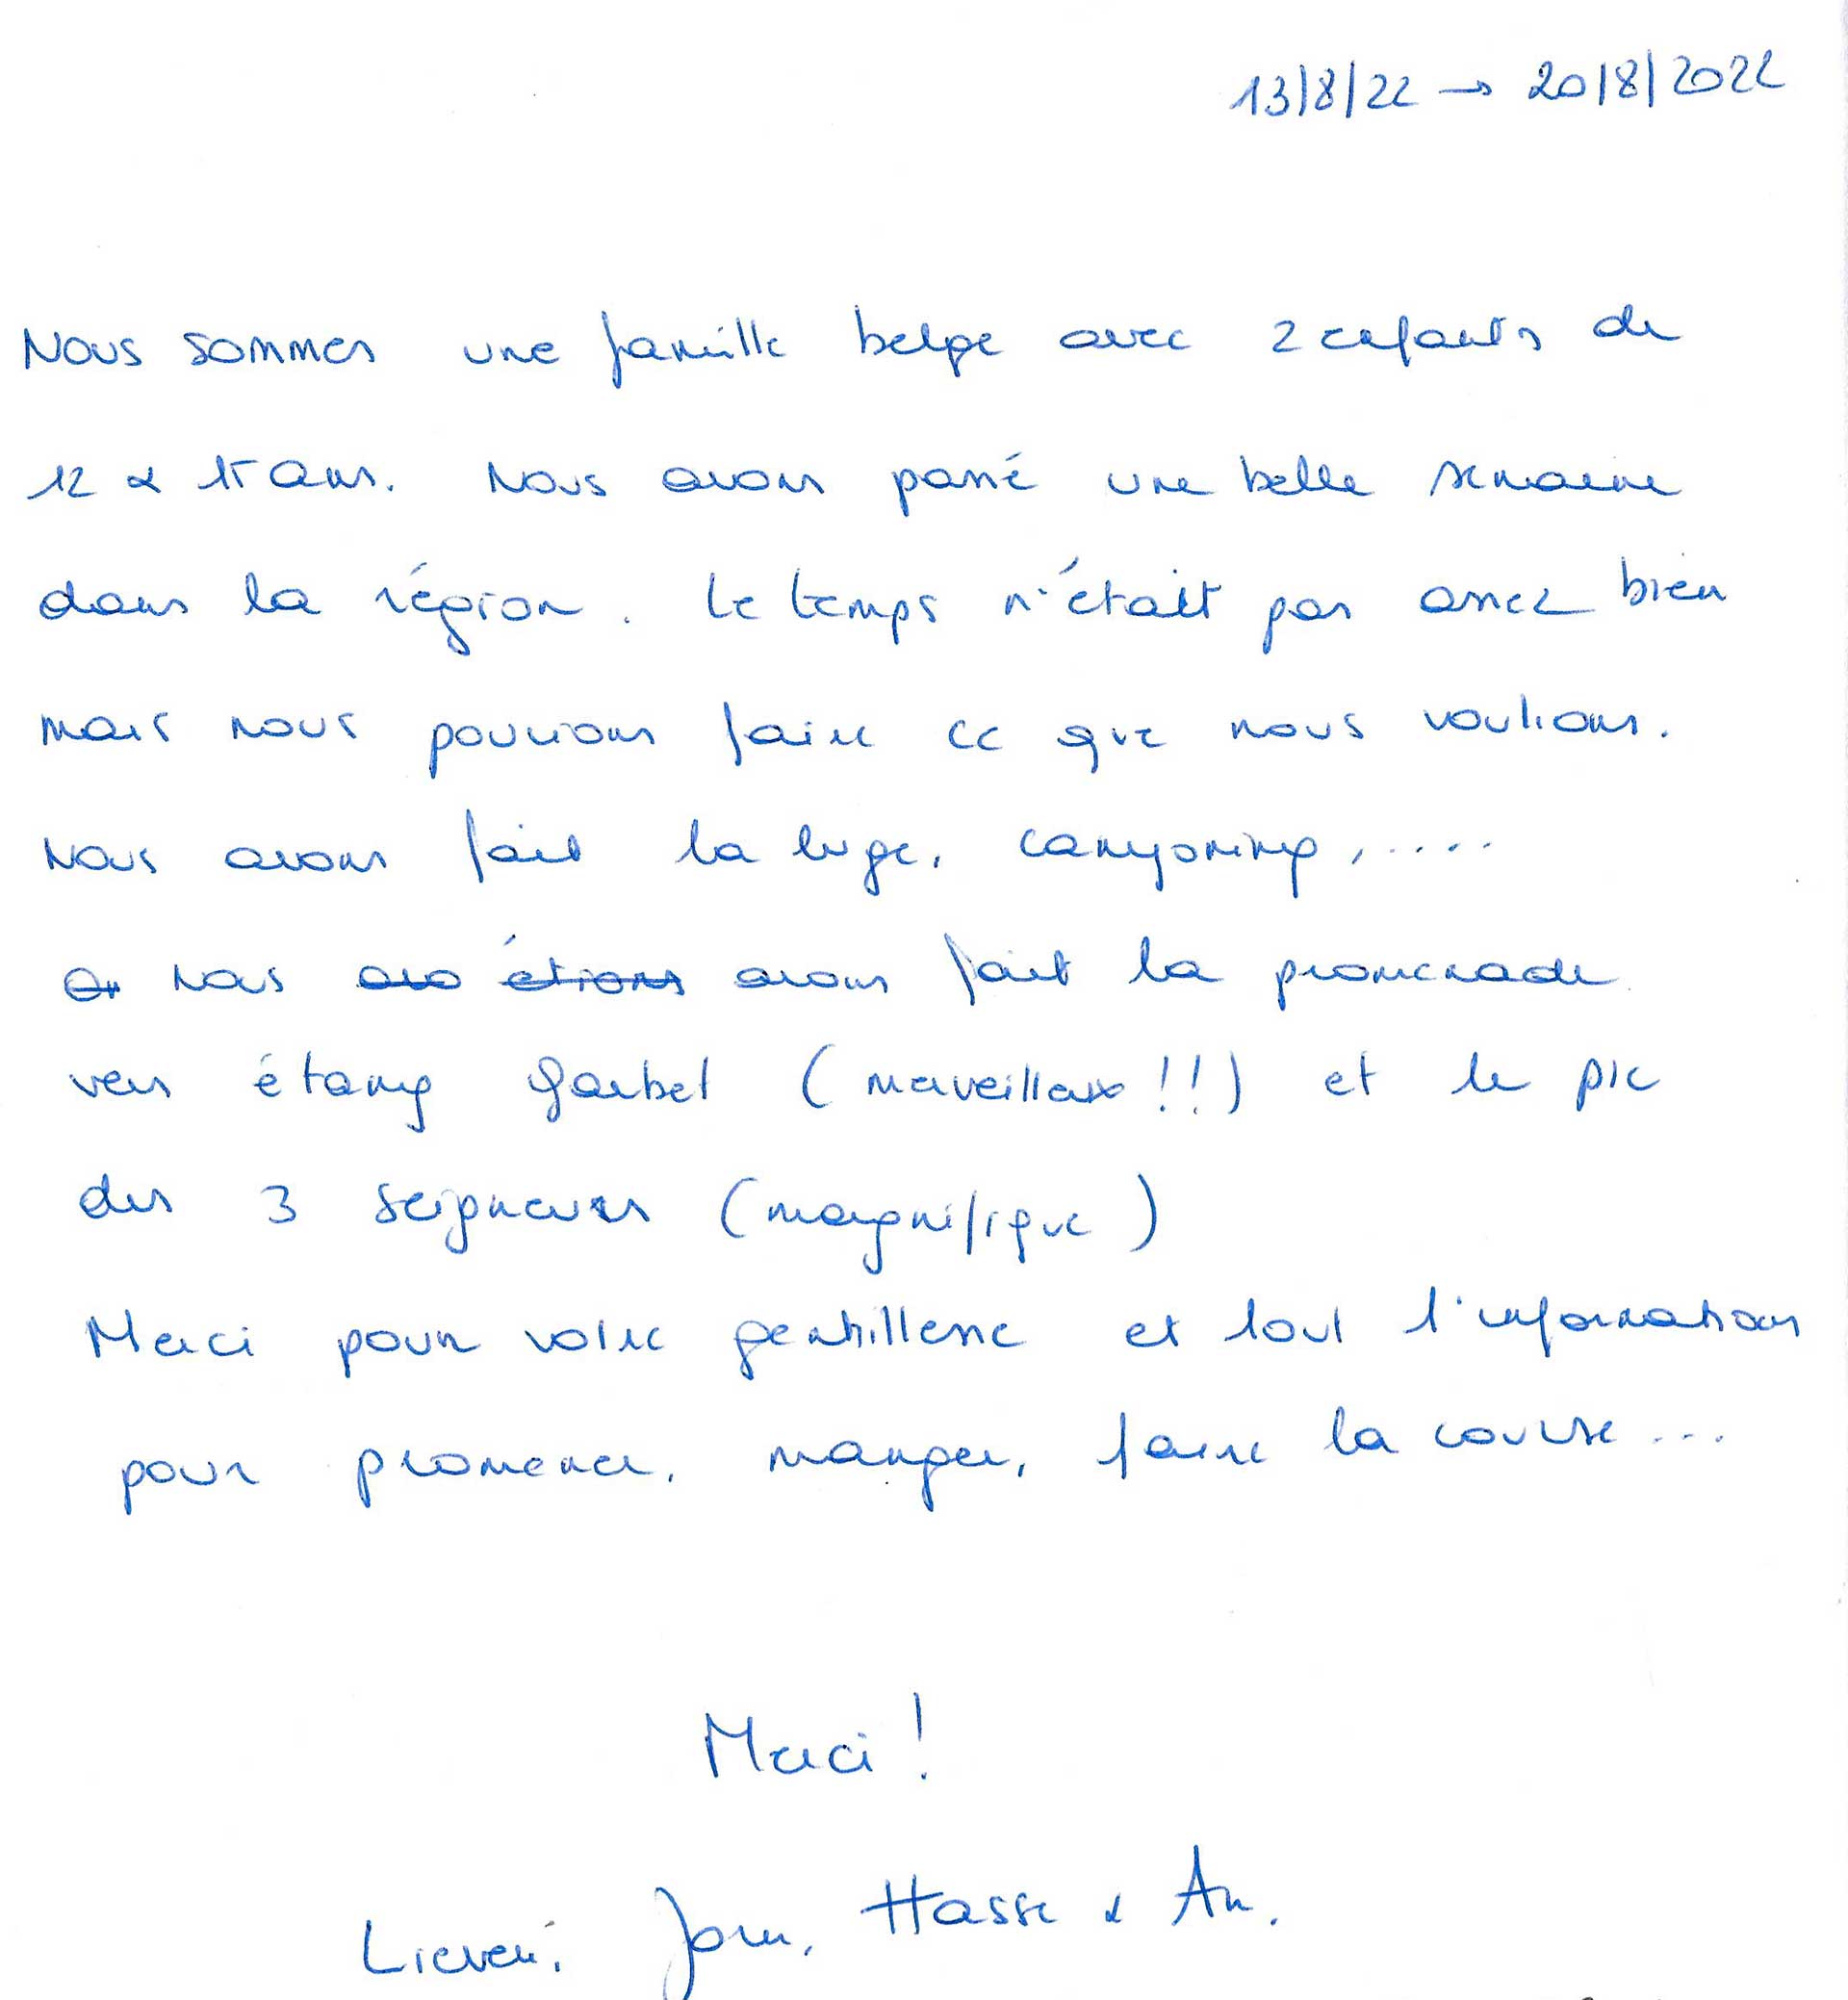 13/8/22 → 20/8/2022
Nous sommes une famille belge avec 2 enfants de
12 & 15 ans. Nous avons passé une belle semaine
dans la région. Le temps n'était pas assez bien
mais nous pouvions faire ce que nous voulions.
Nous avons fait la luge, canyoning, .....
Nous avo étions avons fait la promenade
vers étang Garbet (merveilleux!!) et le pic
des 3 seigneurs (magnifique)
Merci pour votre gentillesse et tout l'informations
pour promener, manger, faire la course...
Merci !
Lieven, Jorn, Hasse & An.